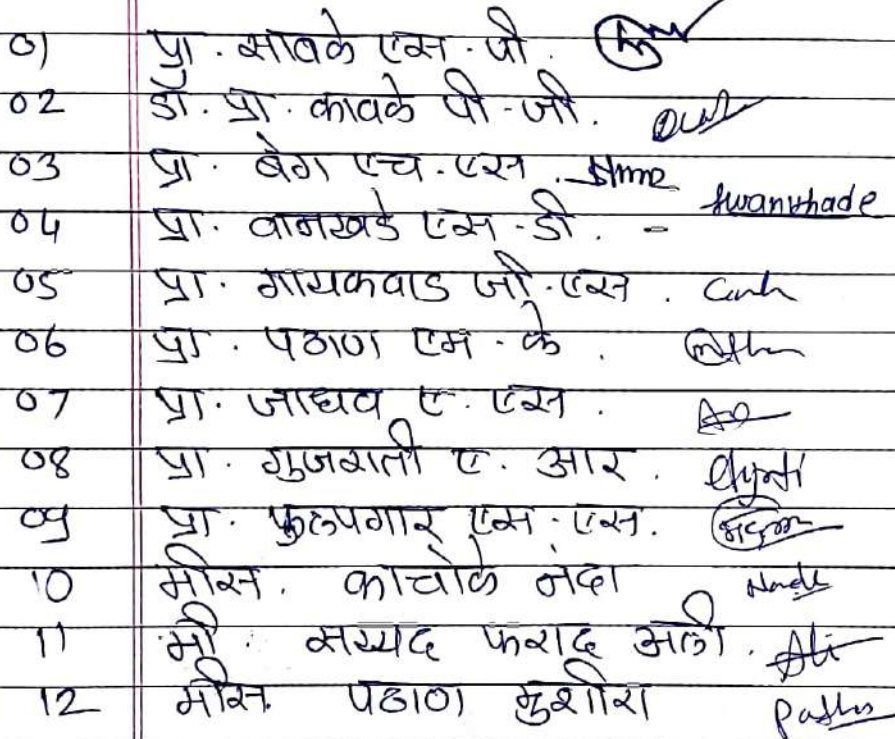 01 प्रा. साबके एस. पी.
02 डॉ. प्रा. कावके पी-जी.
03 प्रा. बेग एच. एस.
04 प्रा. वानखडे एस-डी. - swankhade
05 प्रा. गायकवाड जी. एस.
06 प्रा. पठाण एम. के.
07 प्रा. जाधव ए. एस.
08 प्रा. गुजराती ए. आर.
09 प्रा. फुलपगार एम. एस.
10 मीस. काचोळे नंदा
11 मी. सय्यद फराद अली. Ali
12 मीस. पठाण मुशीरा